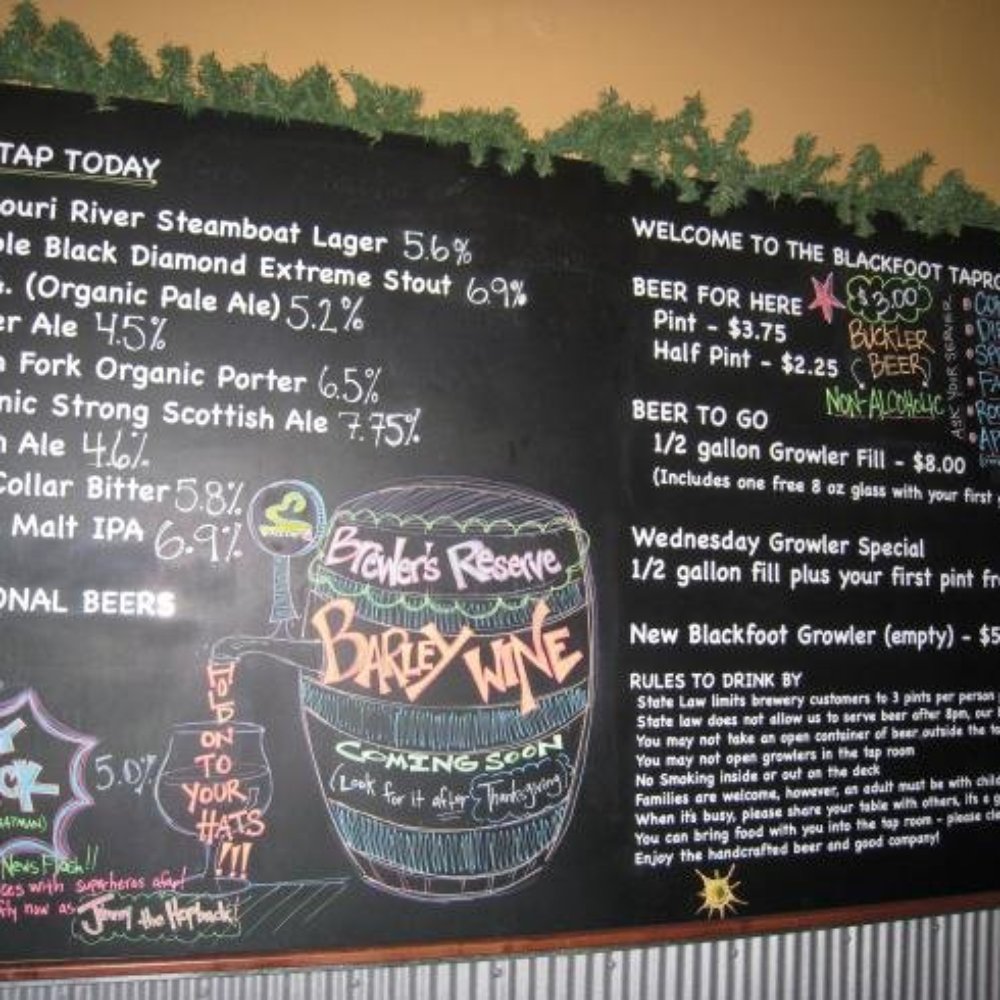 TAP TODAY
ouri River Steamboat Lager 5.6%
ble Black Diamond Extreme Stout 6.9%
. (Organic Pale Ale) 5.2%
er Ale 4.5%
n Fork Organic Porter 6.5%
nic Strong Scottish Ale 7.75%
n Ale 4.6%
Collar Bitter 5.8%
Malt IPA 6.9%
ONAL BEERS
5.0%
ATMAN)
News Flash!!
ses with superheros afoot
tly now as
Jimmy the Hopback!
HOLD
ON
TO
YOUR
HATS
!!!
Brewer's Reserve
BARLEY WINE
COMING SOON
(Look for it after Thanksgiving)
WELCOME TO THE BLACKFOOT TAPRO
BEER FOR HERE
Pint - $3.75
Half Pint - $2.25
$3.00
BUCKLER
BEER
NON-ALCOHOLIC
ASK YOUR SERVER
BEER TO GO
1/2 gallon Growler Fill - $8.00
(Includes one free 8 oz glass with your first
Wednesday Growler Special
1/2 gallon fill plus your first pint fr
New Blackfoot Growler (empty) - $5
RULES TO DRINK BY
State Law limits brewery customers to 3 pints per person
State law does not allow us to serve beer after 8pm, our
You may not take an open container of beer outside the ta
You may not open growlers in the tap room
No Smoking inside or out on the deck
Families are welcome, however, an adult must be with child
When it's busy, please share your table with others, its a
You can bring food with you into the tap room - please cle
Enjoy the handcrafted beer and good company!